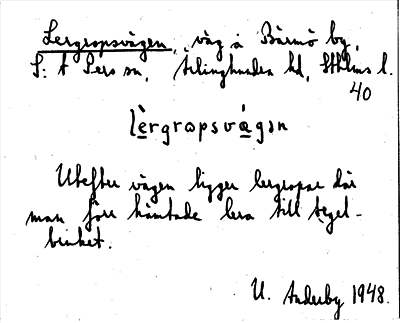 Lergropsvägen, väg å Bärmö by,
S:t Pers sn, Ärlinghundra hd, Sthlms l.
40
lèrgropsvä̀gən
Utefter vägen ligger lergropar där
man förr hämtade lera till tegel-
bruket.
U. Anderby 1948.